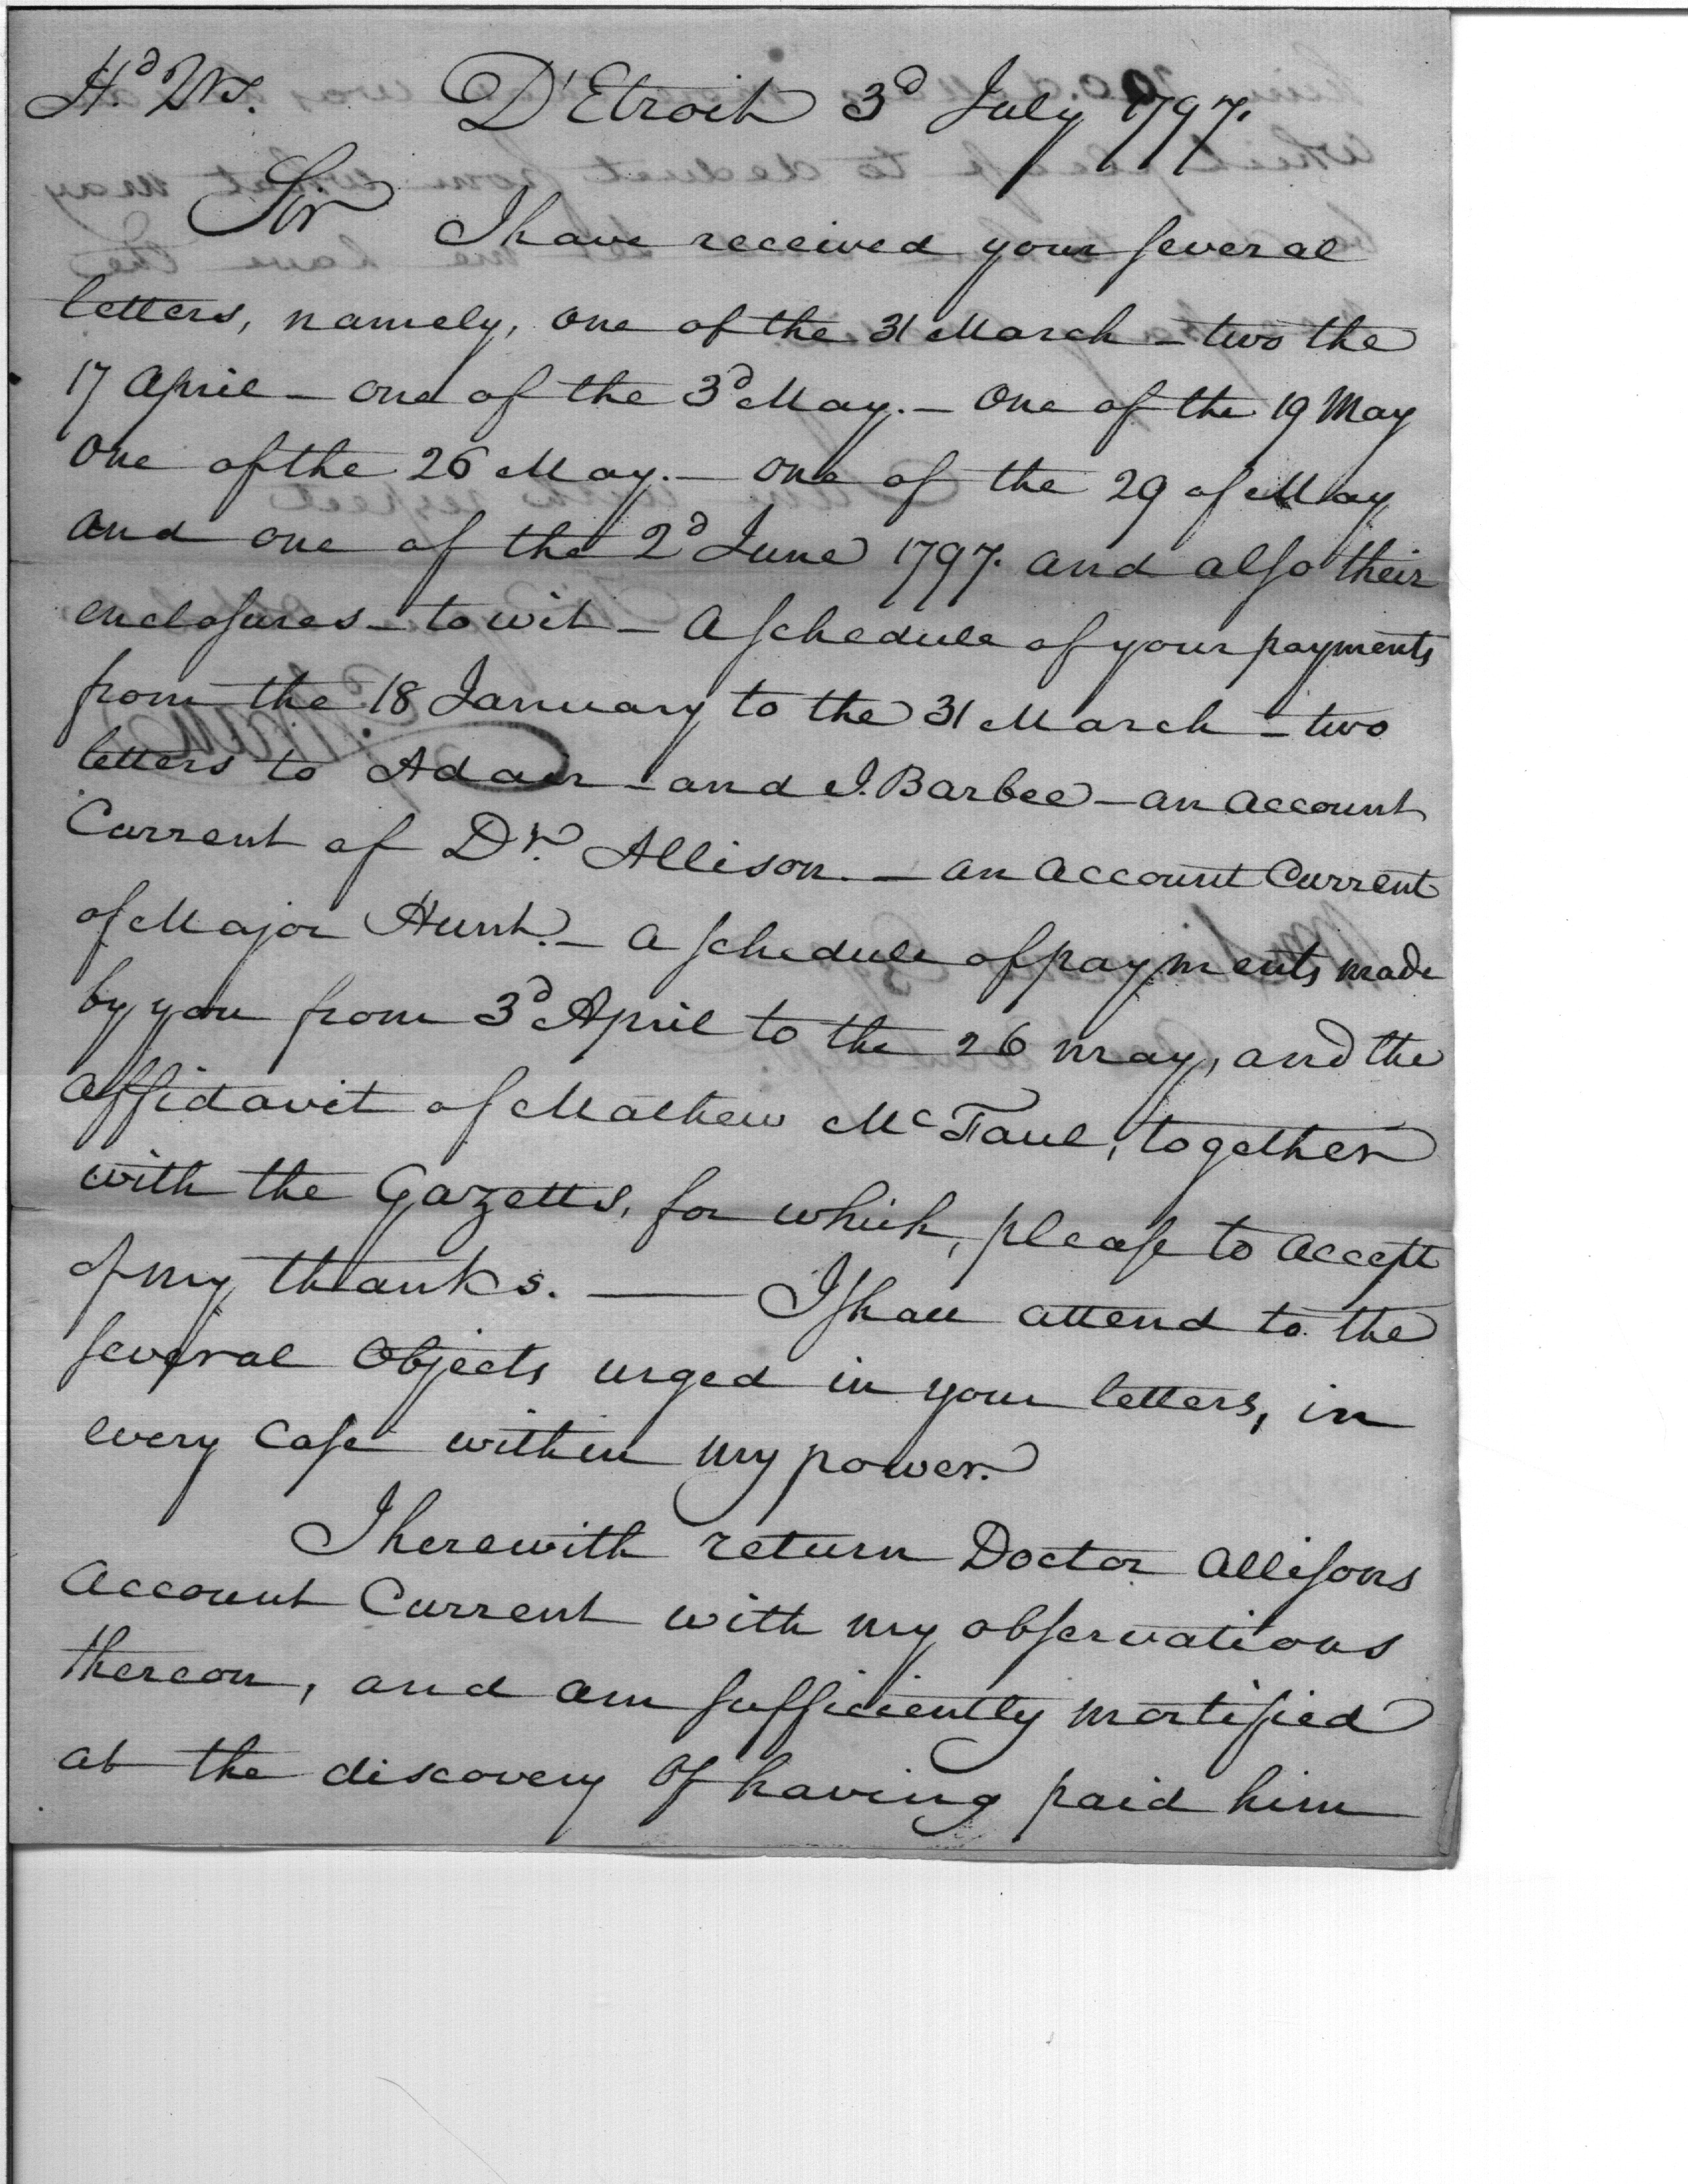 Hd Qrs. D'Etroit 3d July 1797.
Sir I have received your several
letters, namely, one of the 31 March – two the
17 April – one of the 3d May. – One of the 19 May
One of the 26 May. – one of the 29 of May
and one of the 2d June 1797. and also their
enclosures – to wit – A schedule of your payments
from the 18 January to the 31 March – two
letters to Adair – and J. Barbee – an account
Current of Dr. Allison. – an account Current
of Major Hunt. – a schedule of payments made
by you from 3d April to the 26 may, and the
affidavit of Mathew Mc Faul, together
with the Gazetts, for which, please to accept
of my thanks. — I shall attend to the
several Objects urged in your letters, in
every case within my power.
I herewith return Doctor Allisons
Account Current with my observations
thereon, and am sufficiently mortified
at the discovery of having paid him